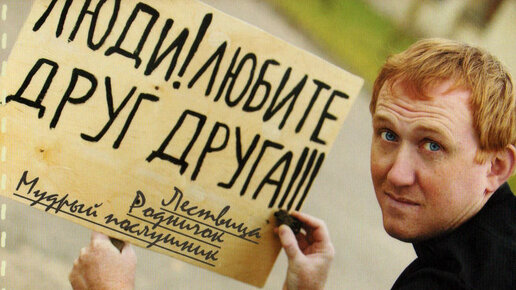 ЛЮДИ! ЛЮБИТЕ
ДРУГ ДРУГА!!!
Лествица
Родничок
Мудрый послушник